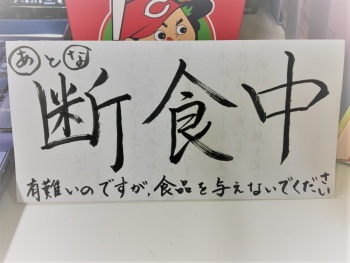 あとな
断食中
有難いのですが、食品を与えないでください